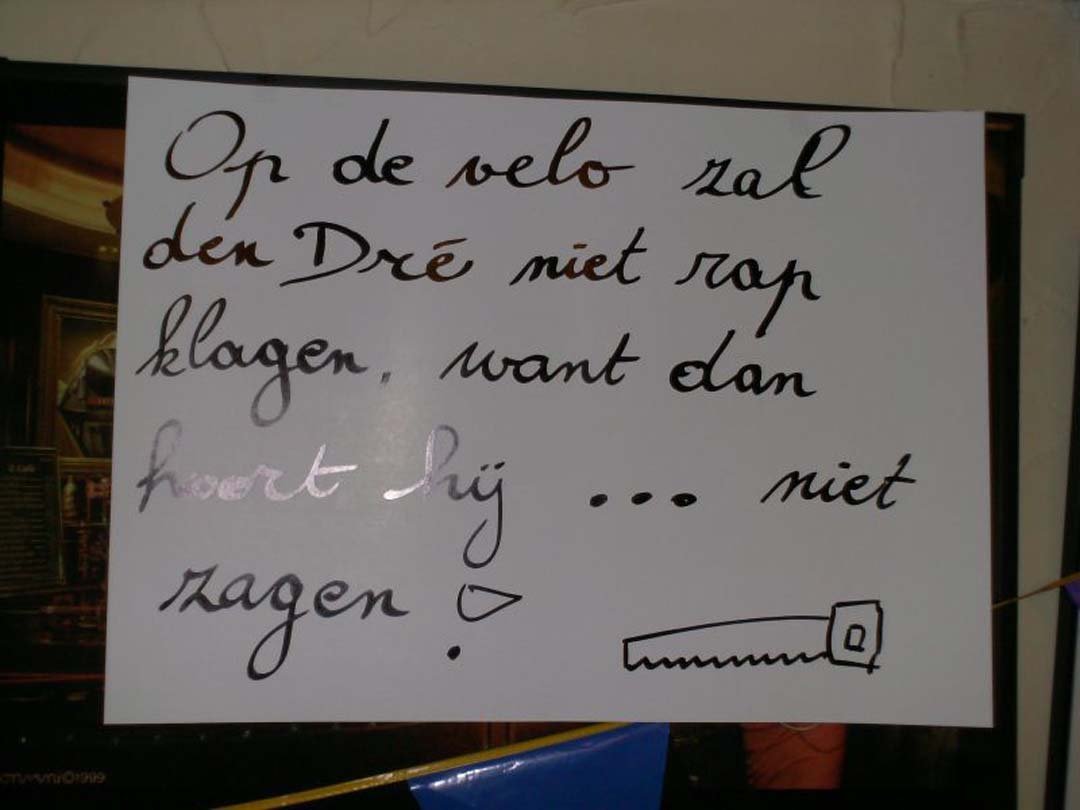 Op de velo zal
den Dré niet rap
klagen, want dan
hoort hij ... niet
zagen!
©1999